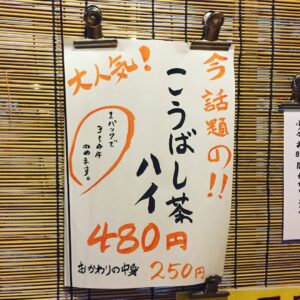 今話題の!!
大人気!
こうばし茶
ハイ
1パックで
3〜4杯
のめます。
480円
おかわりの中身 250円